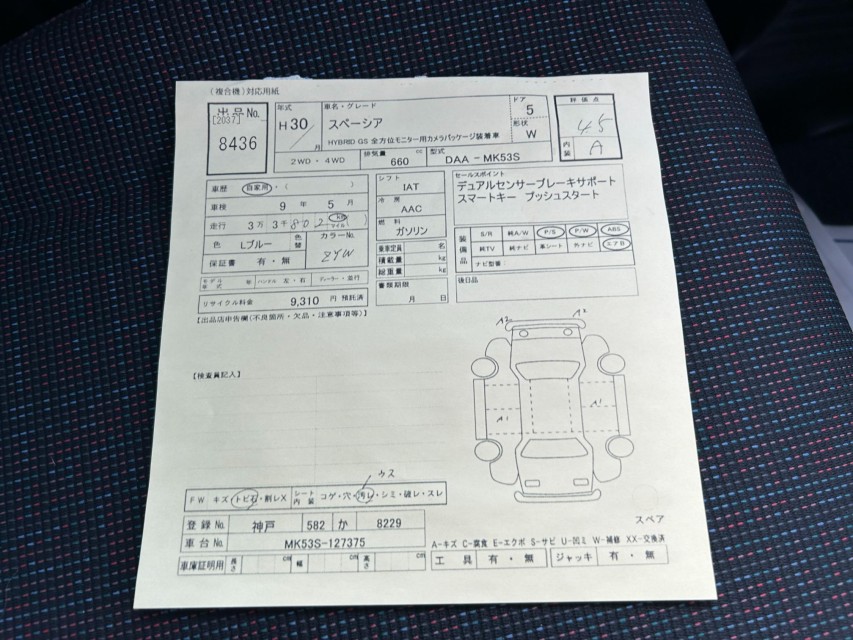 (複合機)対応用紙
出品No.
[2037]
8436
年式
H30
月
車名・グレード
スペーシア
HYBRID GS 全方位モニター用カメラパッケージ装着車
ドア
5
形状
W
評価点
4.5
内装
A
2WD・4WD
排気量
660 cc
型式
DAA-MK53S
車歴 自家用・( )
車検 9 年 5 月
走行 3万 3千 802 km マイル ( )
色 Lブルー 色替
カラーNo.
ZYW
保証書 有・無
モデル年式 年 ハンドル 左・右 ディーラー・並行
リサイクル料金 9,310 円 預託済
シフト
IAT
冷房
AAC
燃料
ガソリン
乗車定員 名
積載量 kg
総重量 kg
書類期限
月 日
セールスポイント
デュアルセンサーブレーキサポート
スマートキー プッシュスタート
装備品
S/R 純A/W P/S P/W ABS
純TV 純ナビ 革シート 外ナビ エアB
ナビ型番
後日品
【出品店申告欄(不良箇所・欠品・注意事項等)】
【検査員記入】
A2
A2
A1
A1
ウス
FW キズ・トビ石・割レX
シート内装 コゲ・穴・汚レ・シミ・破レ・スレ
登録No. 神戸 582 か 8229
車台No. MK53S-127375
車庫証明用 長さ cm 幅 cm 高さ cm
スペア
A-キズ C-腐食 E-エクボ S-サビ U-凹ミ W-補修 XX-交換済
工具 有・無 ジャッキ 有・無